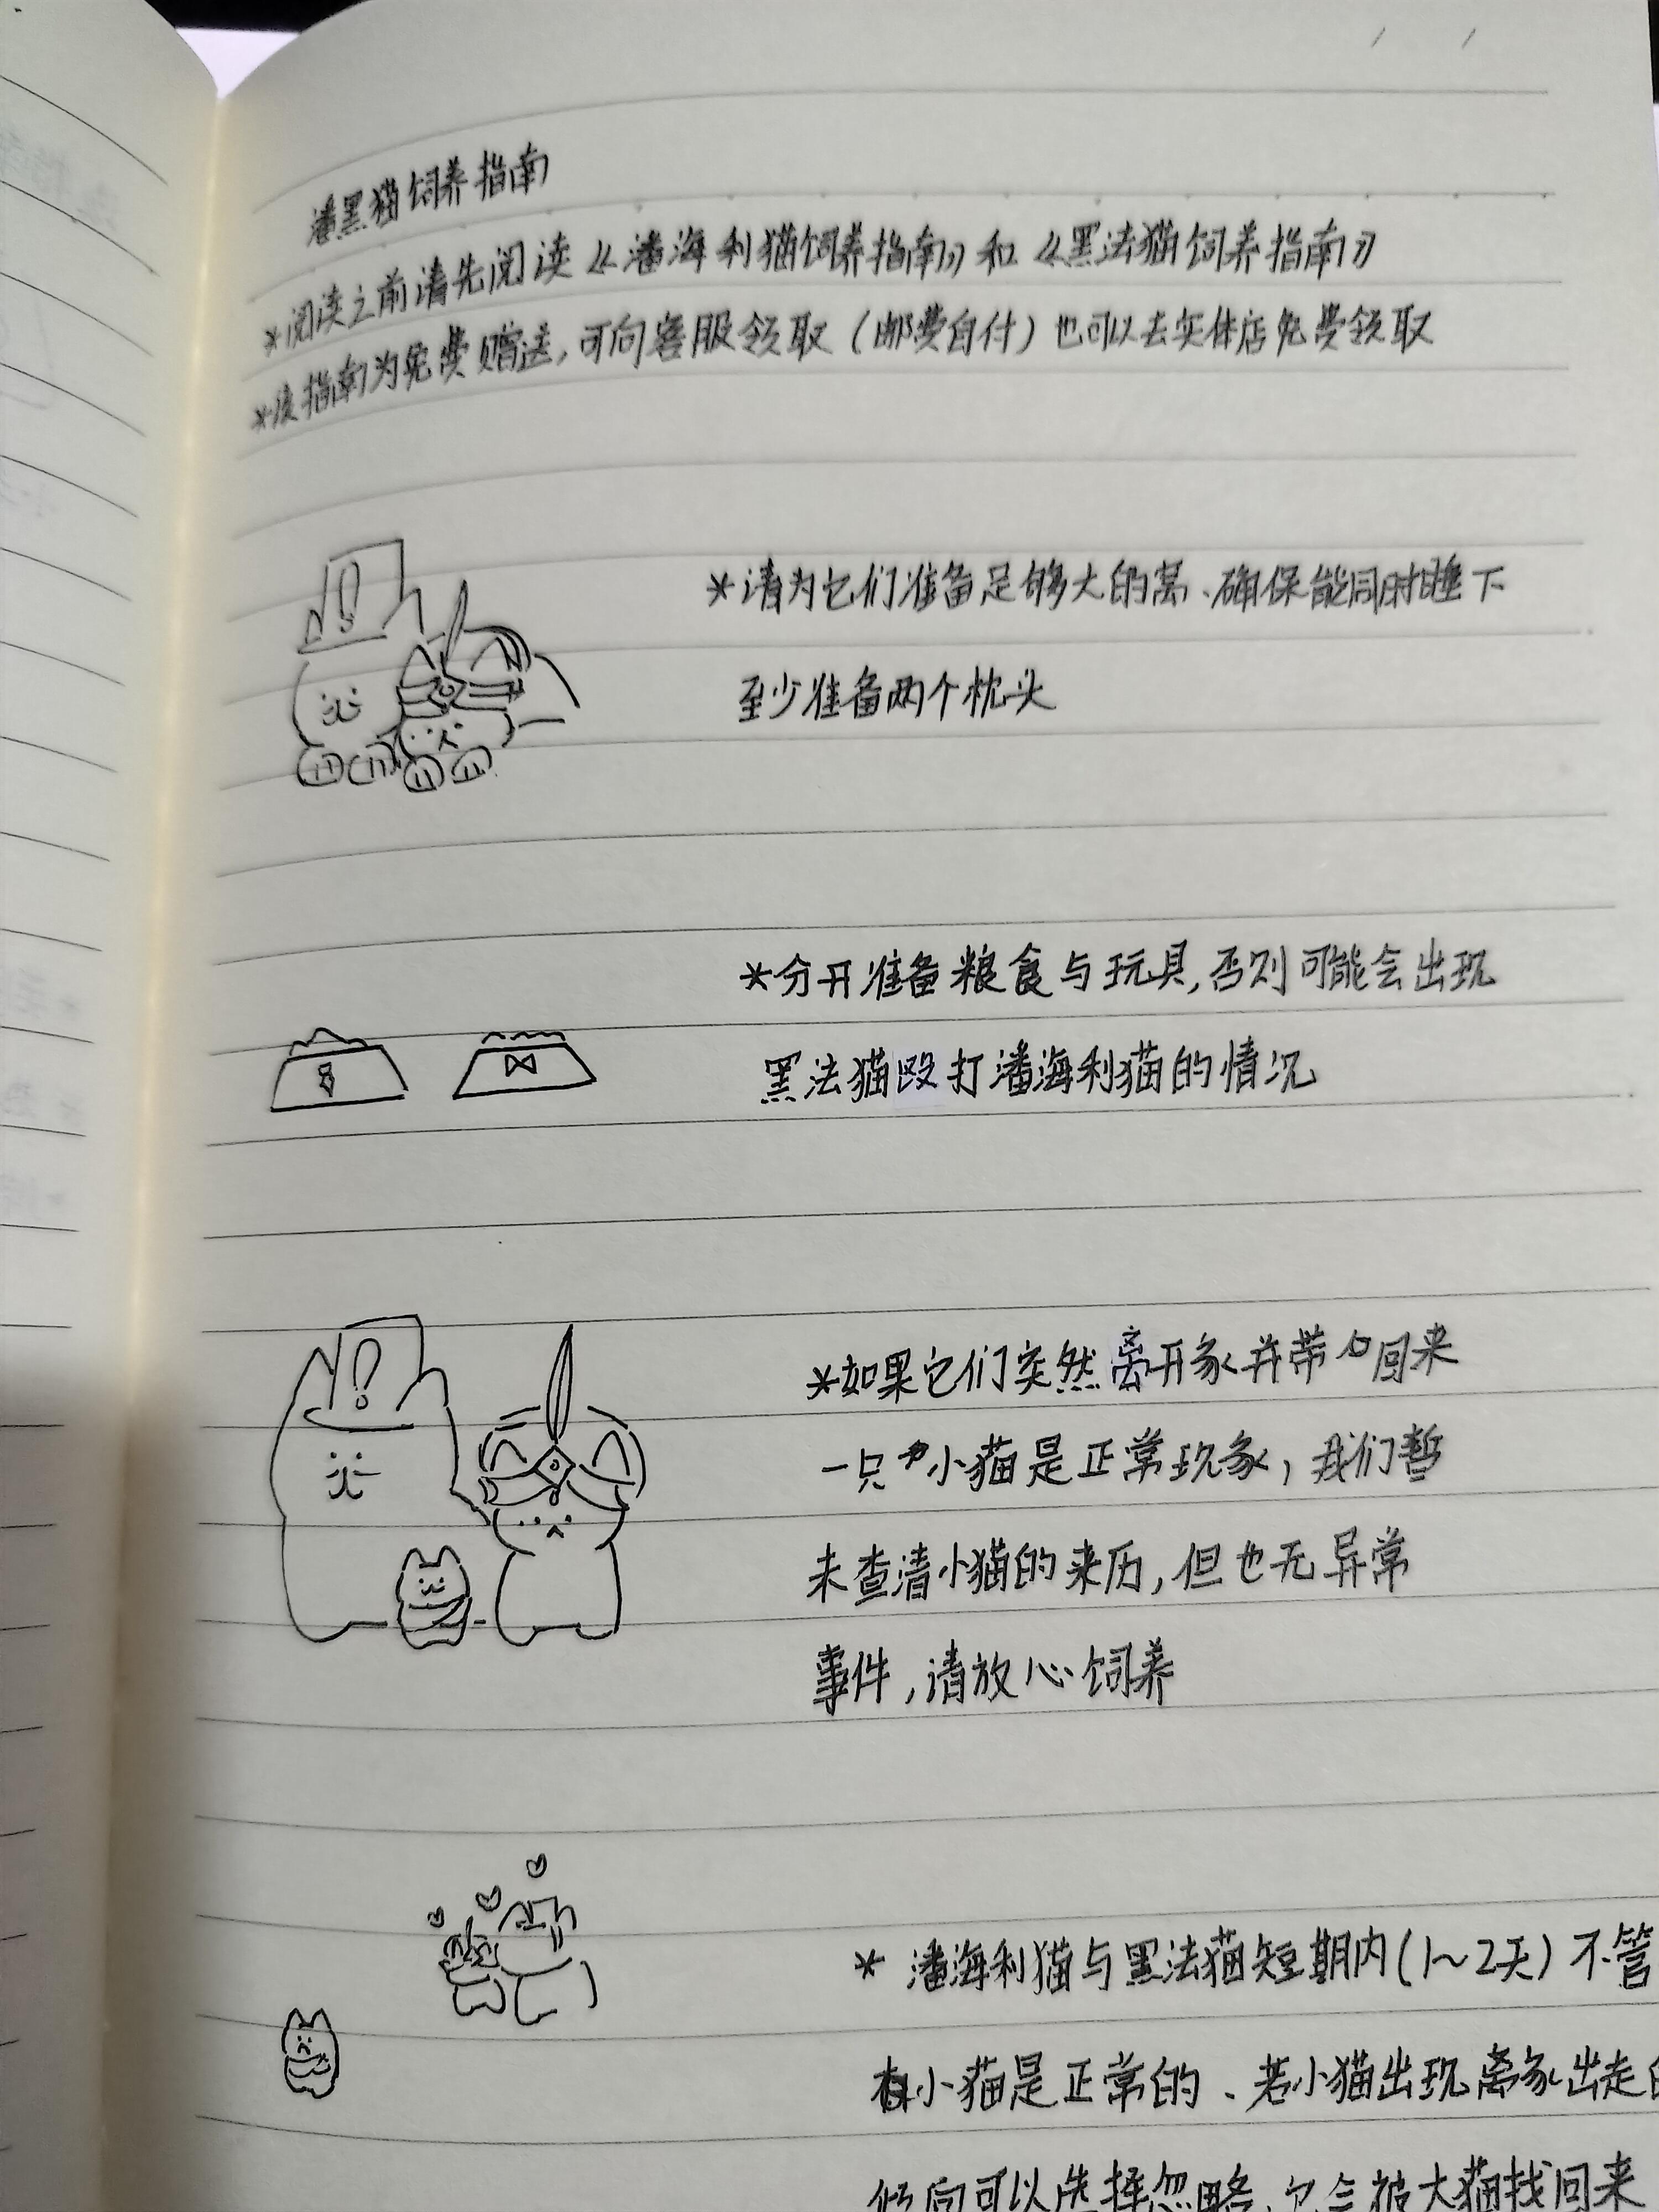 潘黑猫饲养指南
*阅读之前请先阅读《潘海利猫饲养指南》和《黑法猫饲养指南》
*该指南为免费赠送,可向客服领取(邮费自付)也可以去实体店免费领取
*请为它们准备足够大的窝、确保能同时睡下
至少准备两个枕头
*分开准备粮食与玩具,否则可能会出现
黑法猫殴打潘海利猫的情况
*如果它们突然离开家并带回来
一只小猫是正常现象,我们暂
未查清小猫的来历,但也无异常
事件,请放心饲养
* 潘海利猫与黑法猫短期内(1~2天)不管
小猫是正常的、若小猫出现离家出走
倾向可以选择忽略、它会被大猫找回来